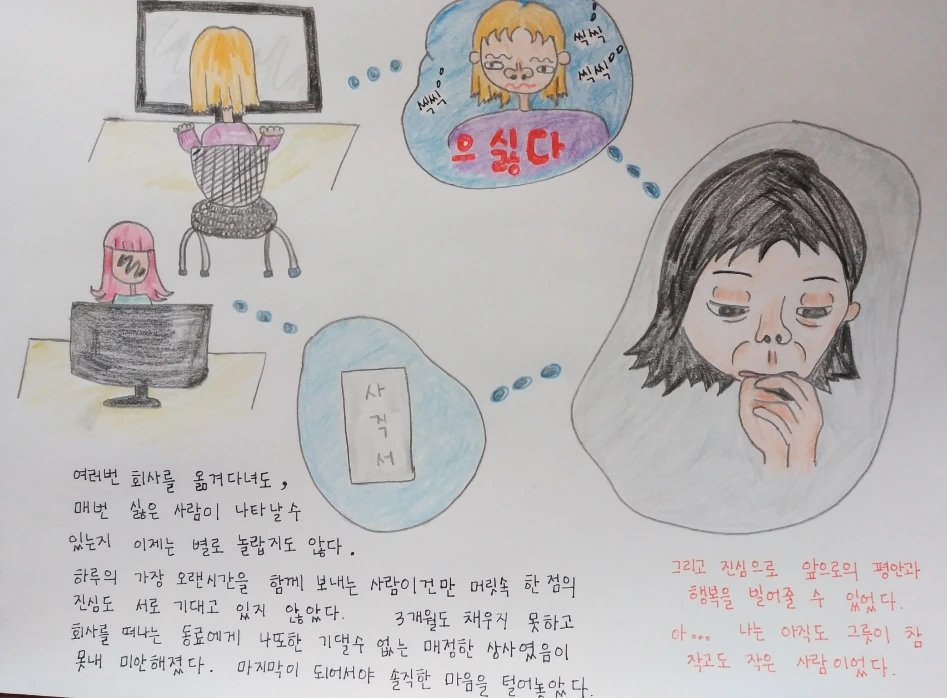 씩씩
씩씩
씩씩
으 싫다
사
직
서
여러번 회사를 옮겨다녀도,
매번 싫은 사람이 나타날 수
있는지 이제는 별로 놀랍지도 않다.
하루의 가장 오랜시간을 함께 보내는 사람이건만 머릿속 한 점의
진심도 서로 기대고 있지 않았다. 3개월도 채우지 못하고
회사를 떠나는 동료에게 나또한 기댈수 없는 매정한 상사였음이
못내 미안해졌다. 마지막이 되어서야 솔직한 마음을 털어놓았다.
그리고 진심으로 앞으로의 평안과
행복을 빌어줄 수 있었다.
아... 나는 아직도 그릇이 참
작고도 작은 사람이었다.